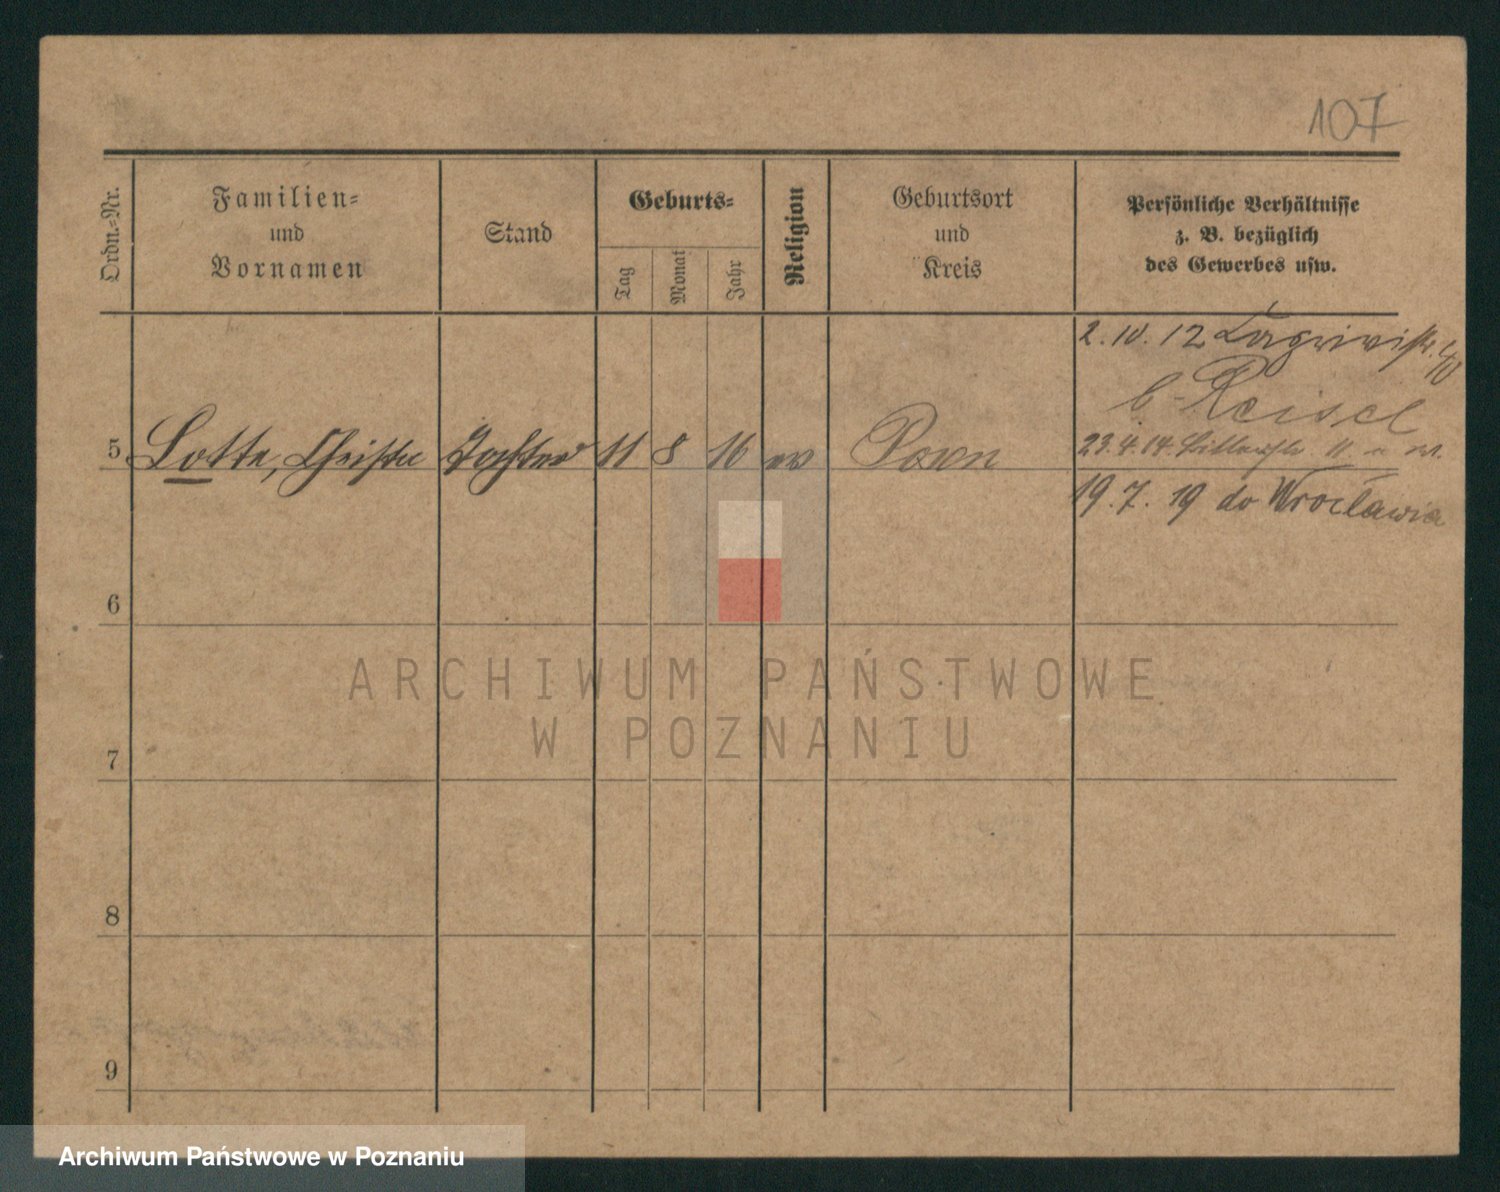 107
Ordn.-Nr.
Familien-
und
Vornamen
Stand
Geburts-
Tag
Monat
Jahr
Religion
Geburtsort
und
Kreis
Persönliche Verhältnisse
z. B. bezüglich
des Gewerbes usw.
2. 10. 12
b. Reisel
5 Lotte, Tochter 11 8 16 ev Posen
23.4.14.
19. 7. 19 do Wrocławia
6
7
8
9
ARCHIWUM PAŃSTWOWE
W POZNANIU
Archiwum Państwowe w Poznaniu